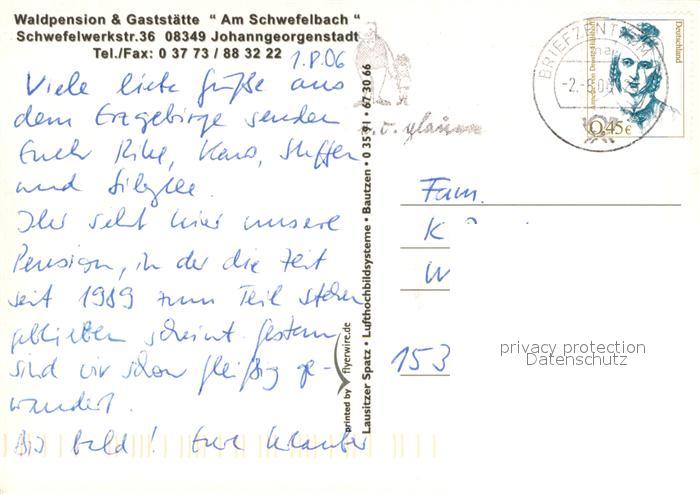 Waldpension & Gaststätte " Am Schwefelbach "
Schwefelwerkstr.36 08349 Johanngeorgenstadt
Tel./Fax: 0 37 73 / 88 32 22
1.8.06
Viele liebe Grüße aus
dem Erzgebirge senden
Euch Rike, Karo, Steffen
und Sibylle.
Ihr seht hier unsere
Pension, in der die Zeit
seit 1989 zum Teil stehen
geblieben scheint. Gestern
sind wir schon fleißig ge-
wandert.
Bis bald! Eure Urlauber
printed by flyerwire.de
Lausitzer Spatz • Lufthochbildsysteme • Bautzen • 0 35 91 • 67 30 66
BRIEFZENTRUM
Deutschland
0,45€
Fam.
K
W
153
privacy protection
Datenschutz